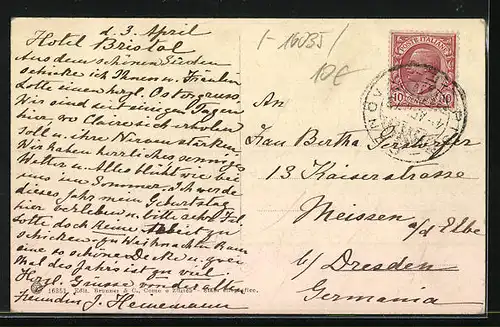 d. 3. April
Hotel Bristol
Aus dem schönen Süden
schicke ich Ihnen u. Fräulein
Lotte einen herzl. Ostergruss.
Wir sind seit einigen Tagen
hier, wo Claire sich erholen
soll u. ihre Nerven stärken.
Wir haben herrliches sonniges
Wetter u. Alles blüht wie bei
uns im Sommer. Ich werde
dieses Jahr mein Geburtstag
hier verleben u. bitte sehr Frl.
Lotte doch keine zu
schicken. Zu Weihnachten kam
eine so schöne Decke u. zwei
Mal des Jahrs ist zu viel
Herzl. Grüsse von der alten
Freundin J. Heinemann
I-16035/
10€
POSTE ITALIANE
10 10
An
Frau Bertha
13 Kaiserstrasse
Meissen a/d Elbe
b/ Dresden
Germania
16351 Ediz. Brunner & C., Como e Zürich